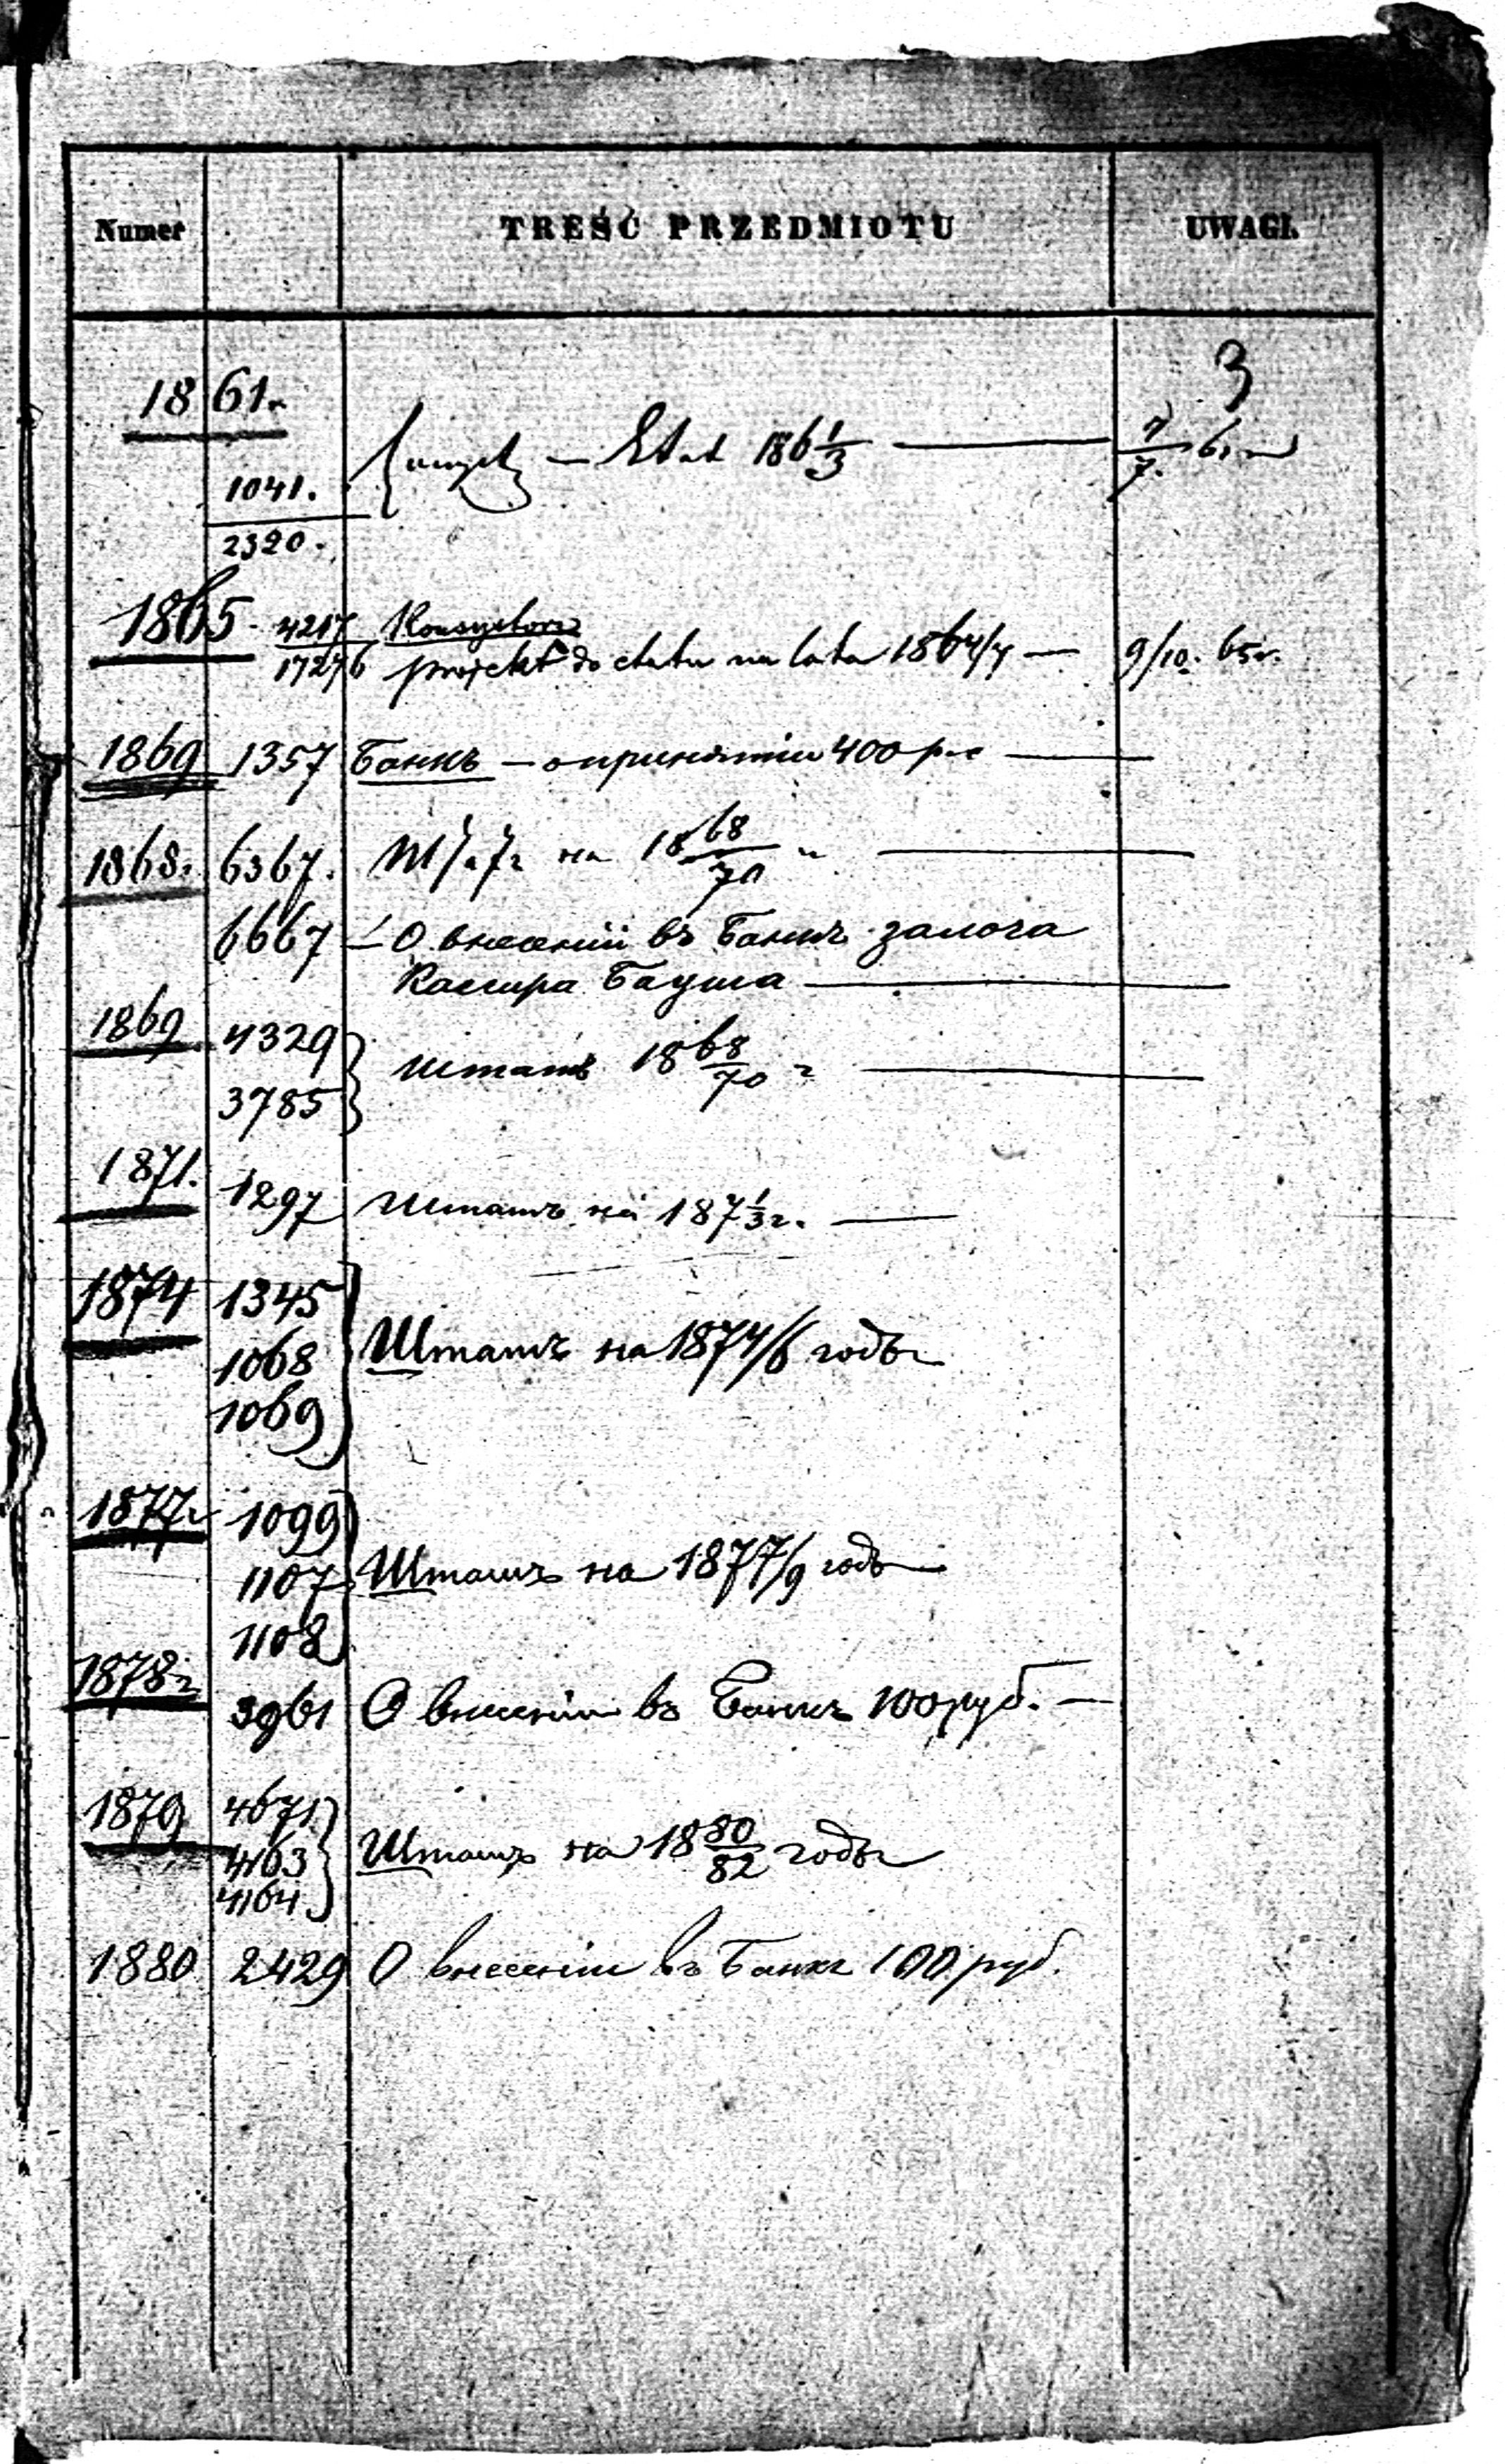 Numer TREŚĆ PRZEDMIOTU UWAGI.
3
1861.
1041. — Etat 186 1/3 —
2320.
1865. 4217 Konsystorz
17276 projekt do etatu na lata 1864/7 — 9/10. 65 r.
1869 1357 Банкъ — о принятіи 400 р.с —
1868. 6367. на 18 68/70 г —
6667 — О внесеніи въ Банкъ залога
Кассира Баума —
1869. 4329
Штатъ 18 68/70 г —
3785
1871. 1297 Штатъ на 187 1/3 г. —
1874 1345
1068 Штатъ на 1874/6 годы
1069
1877 г 1099
1107 Штатъ на 1877/9 годы
1108
1878 г
3961 О внесеніи въ Банкъ 100 руб. —
1879 4671
4163 Штатъ на 18 80/82 годы
4164
1880 2429 О внесеніи въ Банкъ 100 руб.